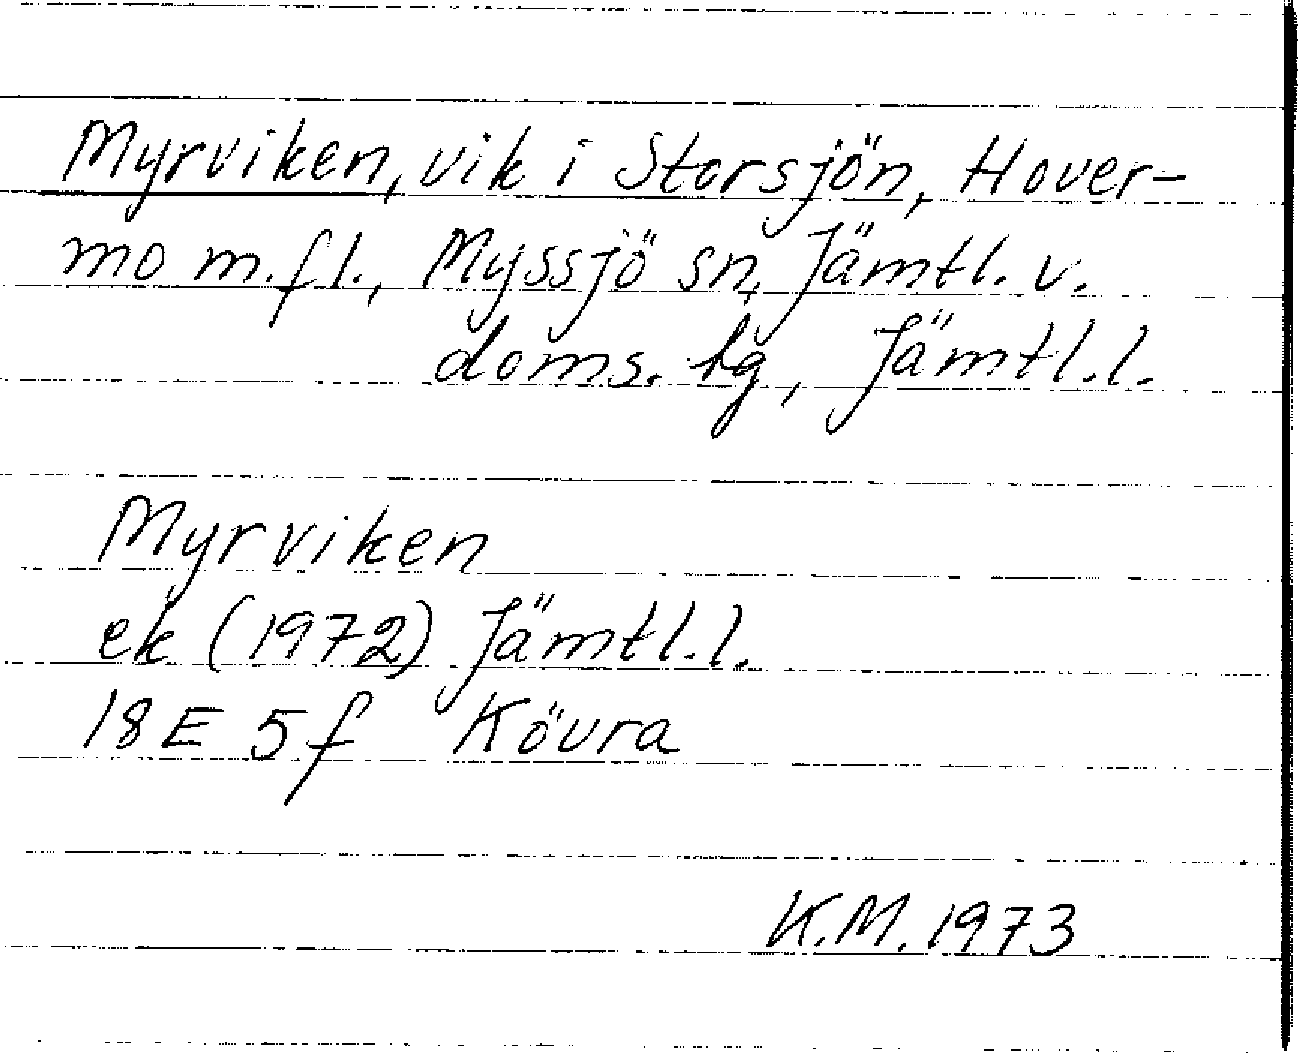 Myrviken, vik i Storsjön, Hover-
mo m.fl., Myssjö sn, Jämtl. v.
doms. tg, Jämtl.l.
Myrviken
ek (1972) Jämtl.l.
18E 5f Kövra
K.M. 1973